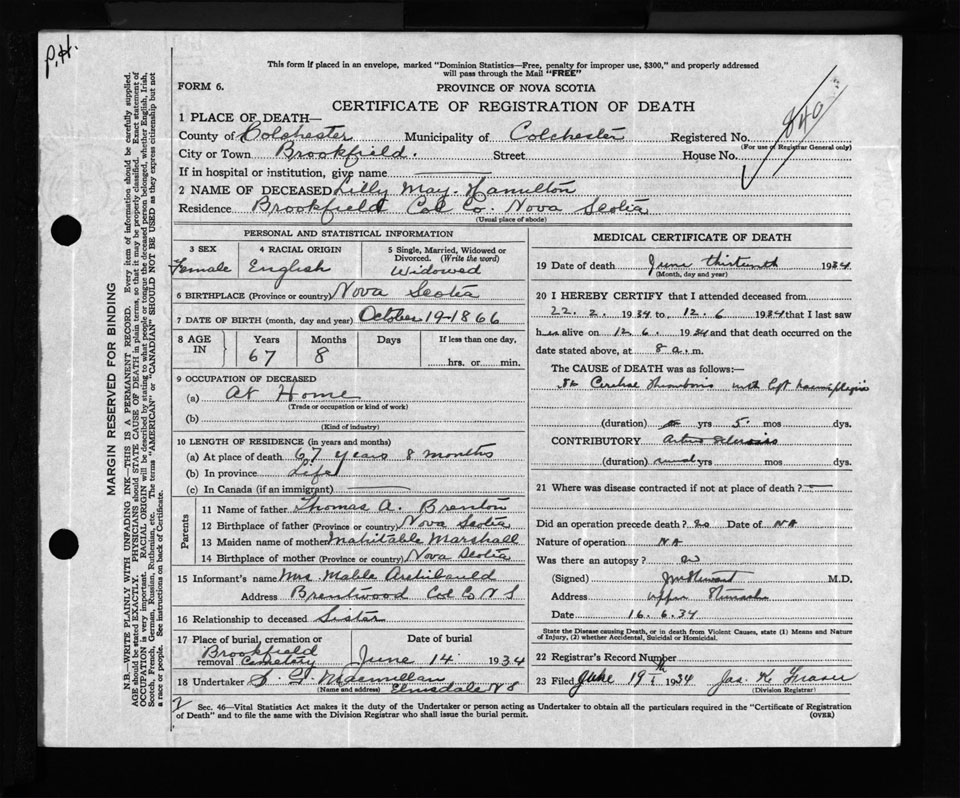 P.H.
This form if placed in an envelope, marked "Dominion Statistics—Free, penalty for improper use, $300," and properly addressed
will pass through the Mail "FREE"
FORM 6. PROVINCE OF NOVA SCOTIA
CERTIFICATE OF REGISTRATION OF DEATH
1 PLACE OF DEATH—
County of Colchester Municipality of Colchester Registered No. 840
(For use of Registrar General only)
City or Town Brookfield. Street House No.
If in hospital or institution, give name
2 NAME OF DECEASED Lilly May Hamilton
Residence Brookfield Col Co. Nova Scotia
(Usual place of abode)
PERSONAL AND STATISTICAL INFORMATION
3 SEX 4 RACIAL ORIGIN 5 Single, Married, Widowed or
Divorced. (Write the word)
Female English Widowed
6 BIRTHPLACE (Province or country) Nova Scotia
7 DATE OF BIRTH (month, day and year) October 19-1866
8 AGE IN Years Months Days If less than one day,
67 8 hrs. or min.
9 OCCUPATION OF DECEASED
(a) At Home
(Trade or occupation or kind of work)
(b)
(Kind of industry)
10 LENGTH OF RESIDENCE (in years and months)
(a) At place of death 67 years 8 months
(b) In province Life
(c) In Canada (if an immigrant)
Parents
11 Name of father Thomas A. Brenton
12 Birthplace of father (Province or country) Nova Scotia
13 Maiden name of mother Mahitable Marshall
14 Birthplace of mother (Province or country) Nova Scotia
15 Informant's name Mrs. Mable Archibauld
Address Brentwood Col Co N S
16 Relationship to deceased Sister
17 Place of burial, cremation or removal Date of burial
Brookfield Cemetary June 14 1934
18 Undertaker S. G. Macmillan
(Name and address) Elmsdale N S
MEDICAL CERTIFICATE OF DEATH
19 Date of death June thirteenth 1934
(Month, day and year)
20 I HEREBY CERTIFY that I attended deceased from
22. 2. 1934 to 12. 6 1934 that I last saw
her alive on 12. 6. 1934 and that death occurred on the
date stated above, at 8 a. m.
The CAUSE OF DEATH was as follows:—
Cerebral Thrombosis with Left haemiplegia
(duration) yrs 5. mos dys.
CONTRIBUTORY Arterio sclerosis
(duration) several yrs mos dys.
21 Where was disease contracted if not at place of death?
Did an operation precede death? no Date of NA
Nature of operation NA
Was there an autopsy? no
(Signed) M.D.
Address Upper
Date 16. 6. 34
State the Disease causing Death, or in death from Violent Causes, state (1) Means and Nature
of Injury, (2) whether Accidental, Suicidal or Homicidal.
22 Registrar's Record Number
23 Filed June 19th 1934 Jas. K Fraser
(Division Registrar)
2
Sec. 46—Vital Statistics Act makes it the duty of the Undertaker or person acting as Undertaker to obtain all the particulars required in the "Certificate of Registration
of Death" and to file the same with the Division Registrar who shall issue the burial permit. (OVER)
MARGIN RESERVED FOR BINDING
N.B.—WRITE PLAINLY WITH UNFADING INK—THIS IS A PERMANENT RECORD. Every item of information should be carefully supplied.
AGE should be stated EXACTLY. PHYSICIANS should STATE CAUSE OF DEATH in plain terms, so that it may be properly classified. Exact statement of
OCCUPATION is very important. RACIAL ORIGIN will be described by stating to what people or tongue the deceased person belonged, whether English, Irish,
Scotch, French, German, Russian, Ruthenian, etc. The terms "AMERICAN" or "CANADIAN" SHOULD NOT BE USED as they express citizenship but not
a race or people. See instructions on back of Certificate.